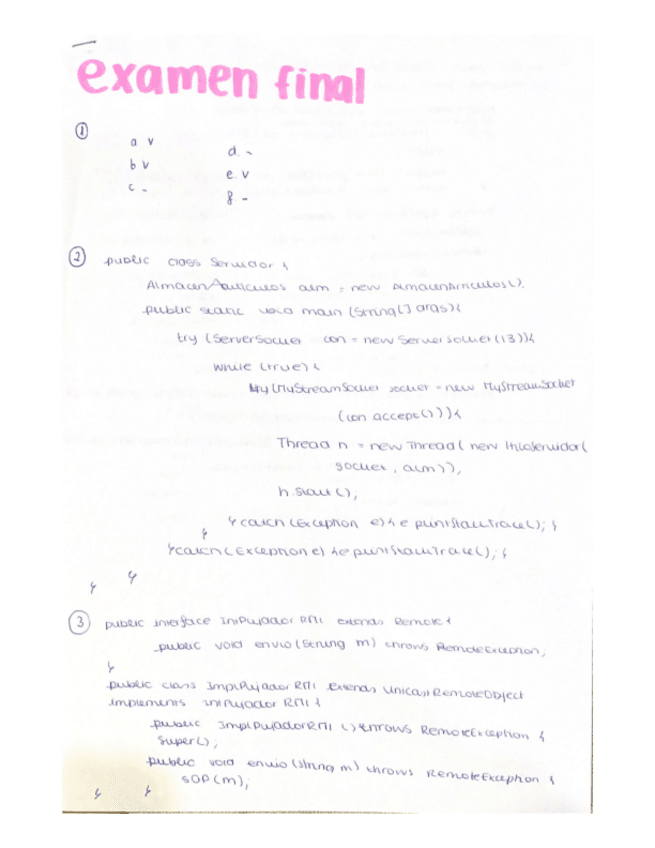 examen final
①
a. v
b v
c -
d. -
e. v
f -
② public class Servidor {
AlmacenArticulos alm = new AlmacenArticulos().
public static void main (String[] args){
try (ServerSocket con = new ServerSocket(13)){
while (true) {
try (MyStreamSocket socket = new MyStreamSocket
(con accept())){
Thread n = new Thread( new HiloServidor(
socket, alm));
h.start();
} catch (Exception e) { e printStackTrace(); }
}
} catch (Exception e) { e printStackTrace(); }
}
}
③ public interface IniPujadorRMI extends Remote {
public void envio (String m) throws RemoteException;
}
public class ImplPujadorRMI extends UnicastRemoteObject
implements IniPujadorRMI {
public ImplPujadorRMI () throws RemoteException {
super();
public void envio (string m) throws RemoteException {
SOP (m);
} }